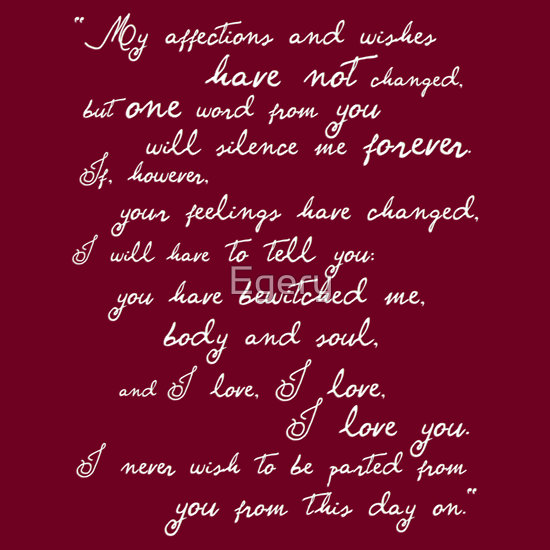 "My affections and wishes
have not changed,
but one word from you
will silence me forever.
If, however,
your feelings have changed,
I will have to tell you:
Egery
you have bewitched me,
body and soul,
and I love, I love,
I love you.
I never wish to be parted from
you from this day on."